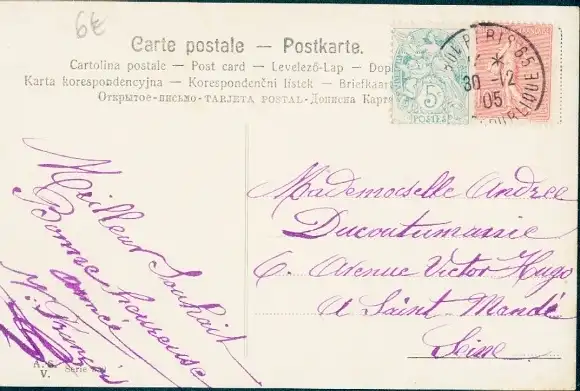 6€
Carte postale — Postkarte.
Cartolina postale — Post card — Levelező-Lap —
Karta korespondencyjna — Korespondenční lístek — Briefkaart
Открытое-письмо - TARJETA POSTAL - Дописна
5
POSTES
PARIS 65
30 -12
05
Meilleur Souhait
Bonne heureuse
année
Mademoiselle Andrée
Ducoutumanie
6. Avenue Victor Hugo
A Saint-Mandé
Seine
A. S.
V.
Serie